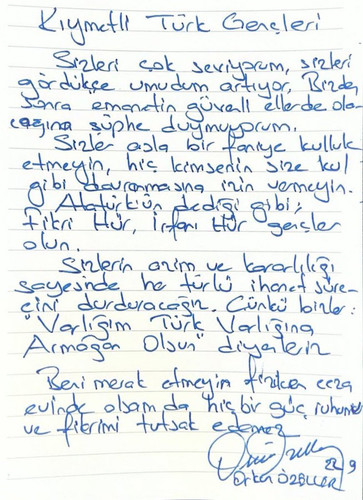 Kıymetli Türk Gençleri
Sizleri çok seviyorum, sizleri
gördükçe umudum artıyor. Bizden
sonra emanetin güvenli ellerde ola
cağına şüphe duymuyorum.
Sizler asla bir faniye kulluk
etmeyin, hiç kimsenin size kul
gibi davranmasına izin vermeyin.
Atatürk'ün dediği gibi;
Fikri Hür, İrfanı Hür gençler
olun.
Sizlerin azim ve kararlılığı
sayesinde he türlü ihanet süre-
cini durduracağız. Çünkü bizler:
"Varlığım Türk Varlığına
Armağan Olsun" diyenleriz
Beni merak etmeyin fiziken ceza
evinde olsam da hiç bir güç ruhumu
ve fikrimi tutsak edemez
ÖZELLER